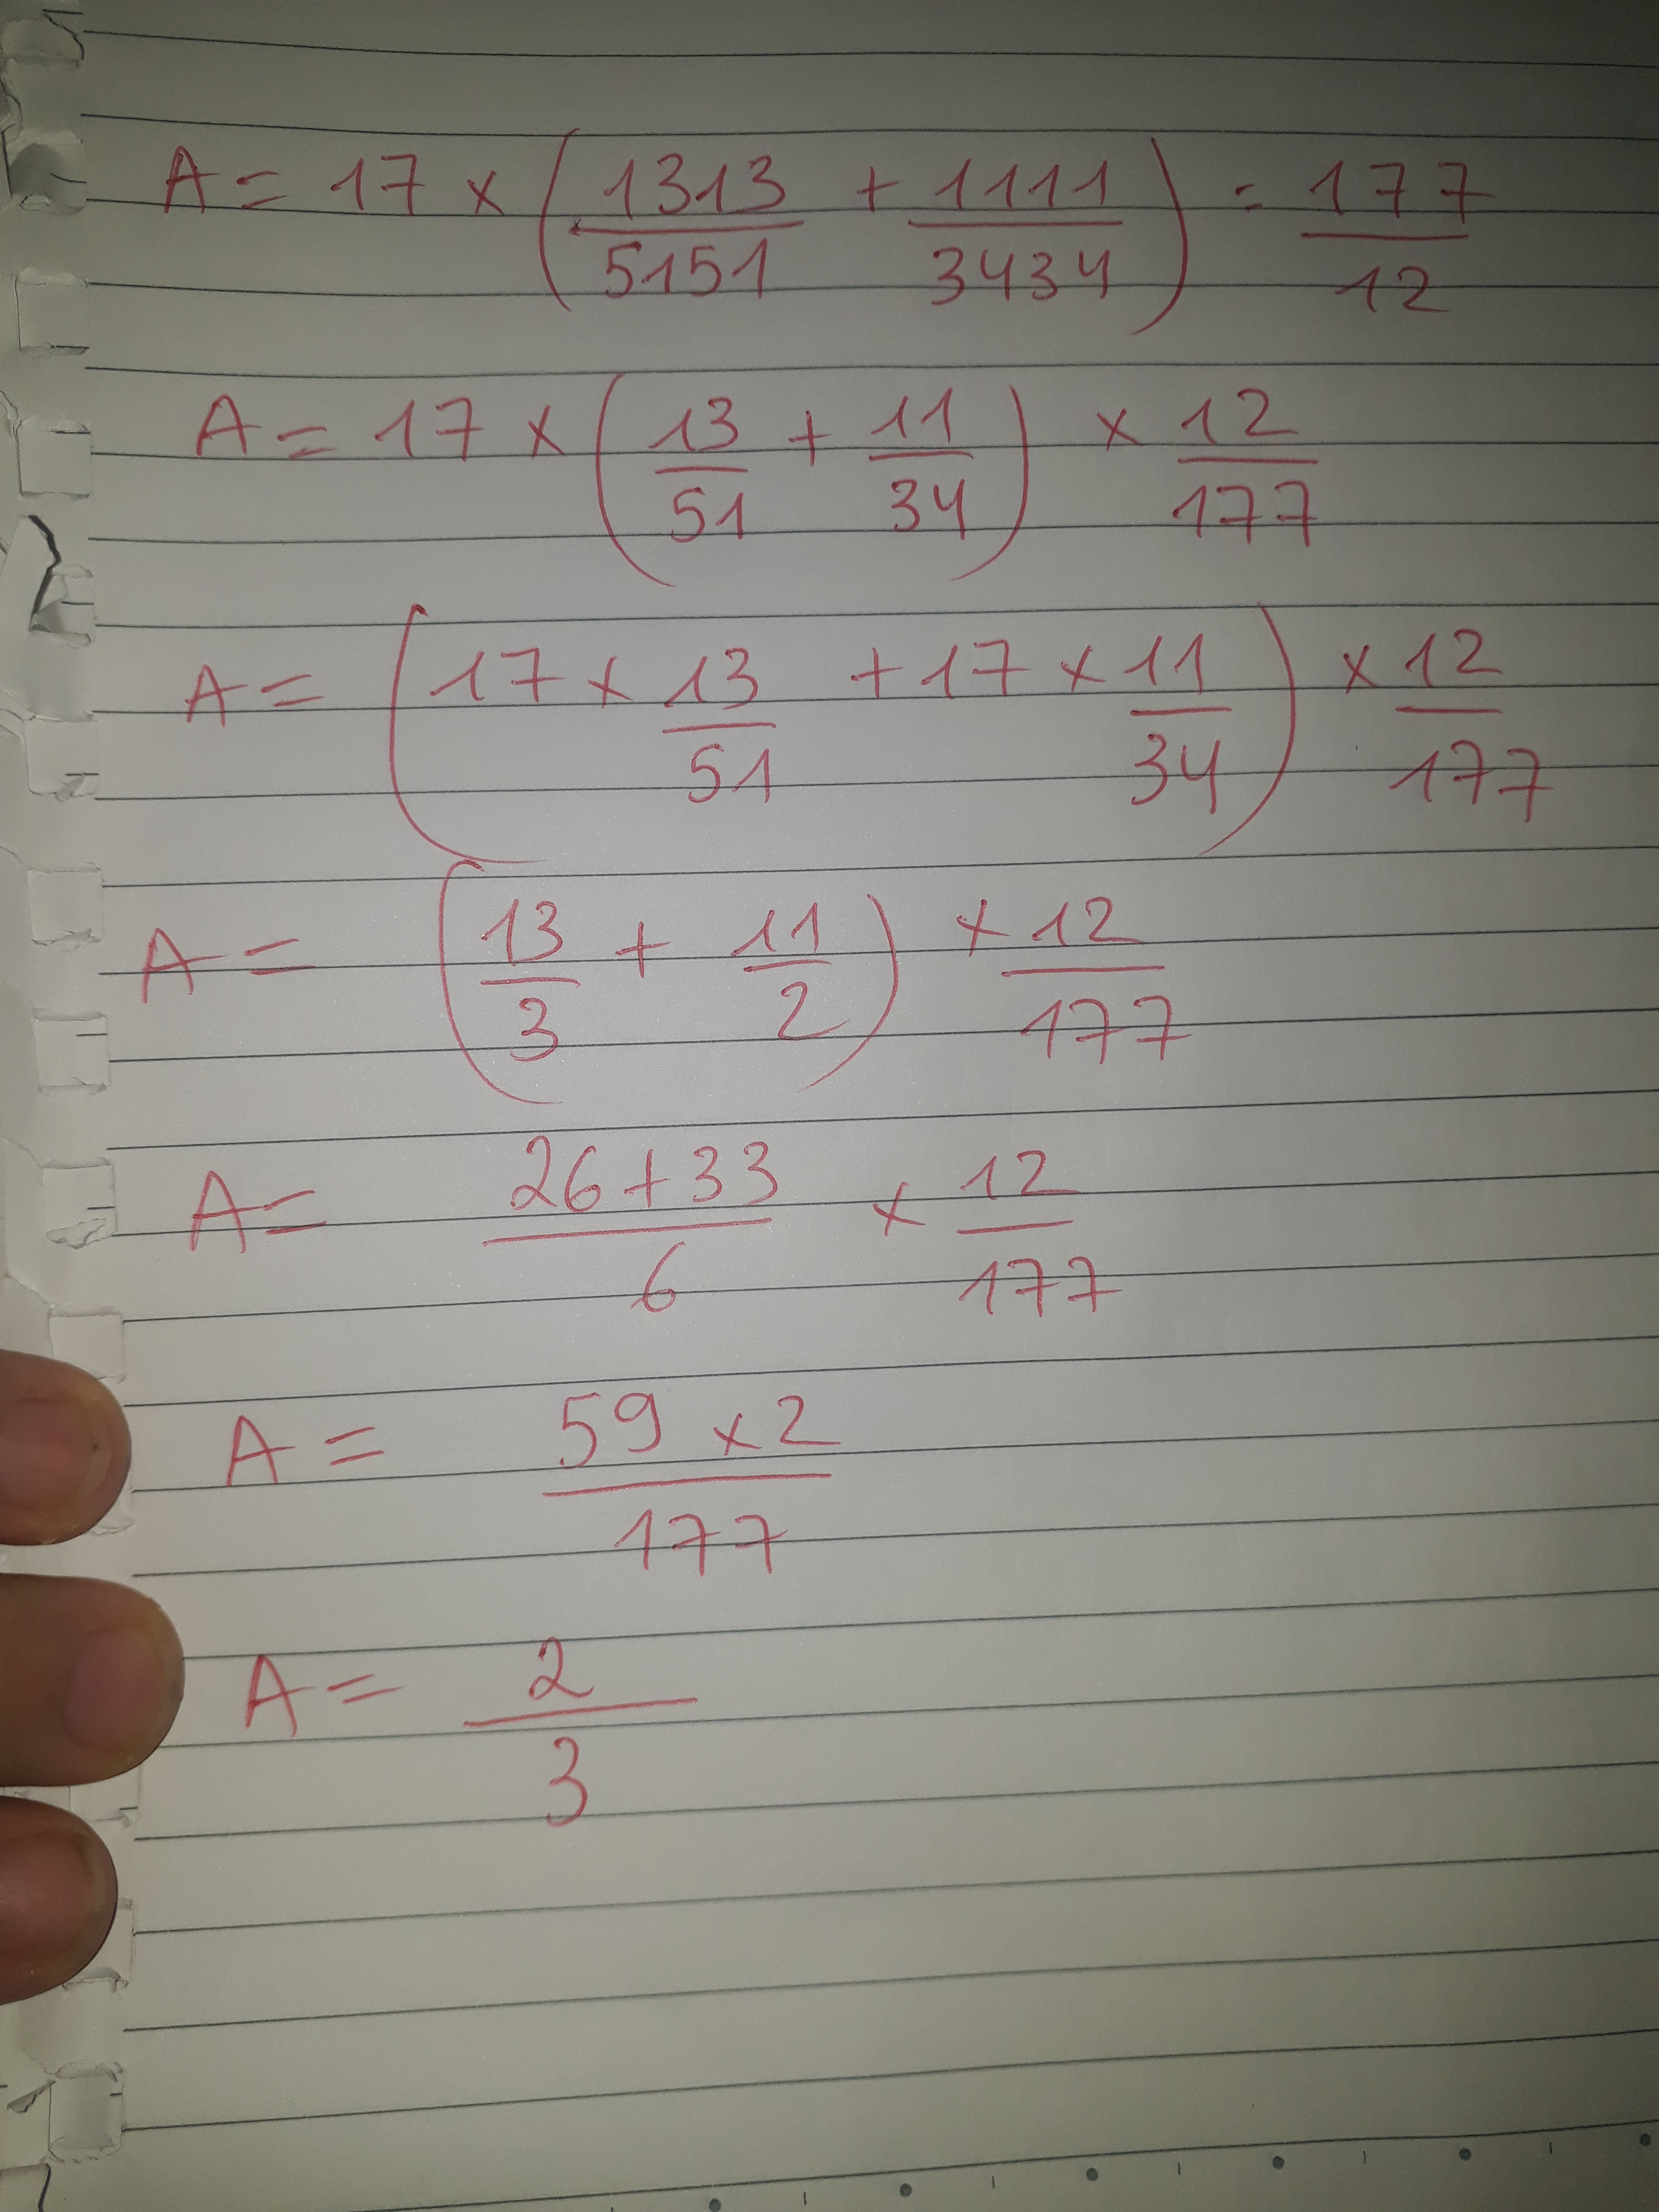 A = 17 × ( 1313/5151 + 1111/3434 ) : 177/12
A = 17 × ( 13/51 + 11/34 ) × 12/177
A = ( 17 × 13/51 + 17 × 11/34 ) × 12/177
A = ( 13/3 + 11/2 ) × 12/177
A = (26+33)/6 × 12/177
A = (59 × 2)/177
A = 2/3